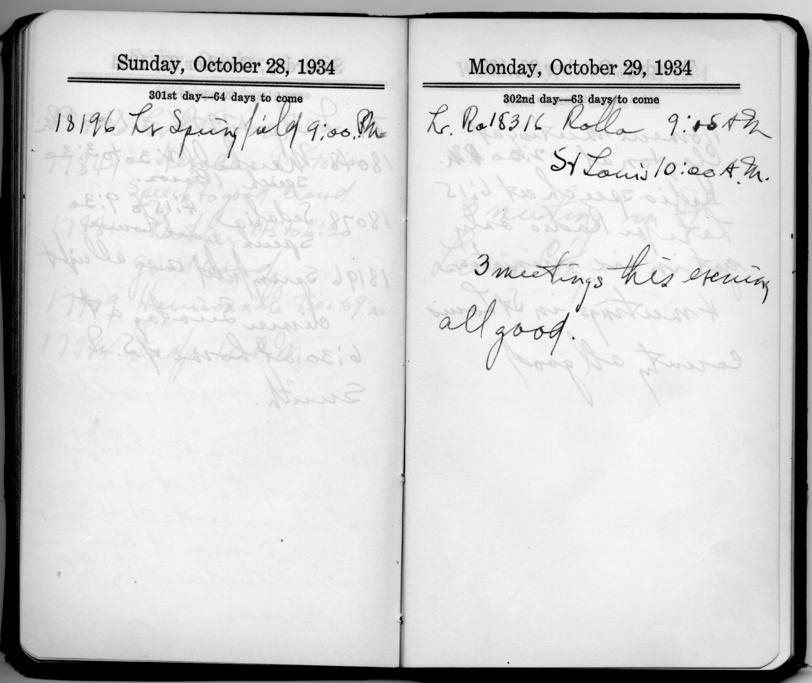 Sunday, October 28, 1934
301st day—64 days to come
18196 Lv Springfield 9:00 PM
Monday, October 29, 1934
302nd day—63 days to come
Lv. Ro 18316 Rolla 9:05 AM
St Louis 10:00 A.M.
3 meetings this evening
all good.